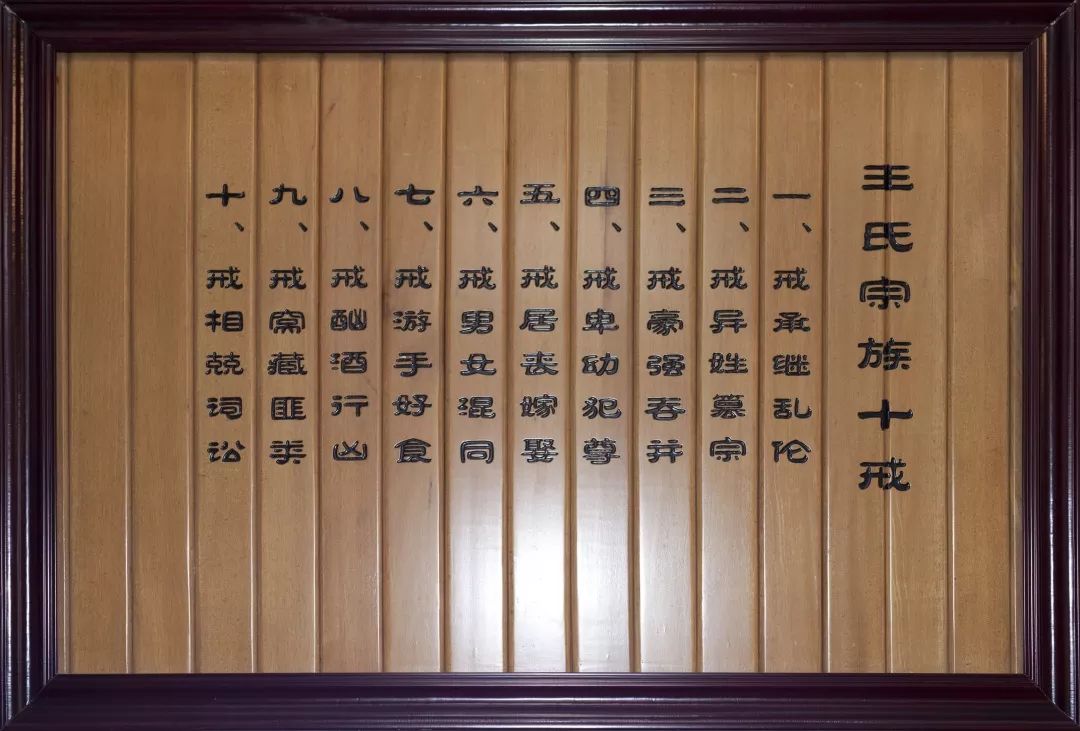 王氏宗族十戒
一、戒承继乱伦
二、戒异姓篡宗
三、戒豪强吞并
四、戒卑幼犯尊
五、戒居丧嫁娶
六、戒男女混同
七、戒游手好食
八、戒酗酒行凶
九、戒窝藏匪类
十、戒相兢词讼